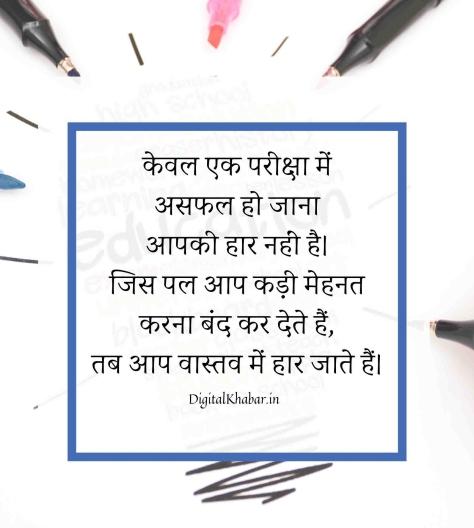 high school
learning
education
केवल एक परीक्षा में
असफल हो जाना
आपकी हार नहीं है।
जिस पल आप कड़ी मेहनत
करना बंद कर देते हैं,
तब आप वास्तव में हार जाते हैं।
DigitalKhabar.in